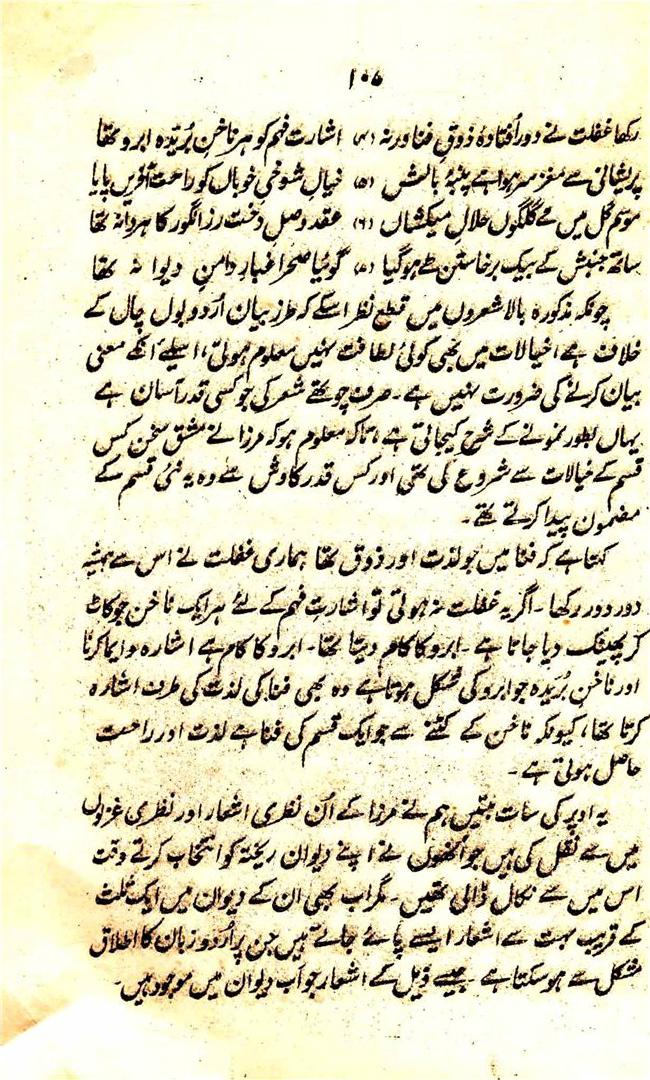 ۱۰۵
رکھا غفلت نے دور اُفتادہ ذوقِ فنا ورنہ (۴) اشارت فہم کو ہر ناخنِ بُریدہ ابرو تھا
پریشانی سے مغز سر ہوا ہے پنبۂ بالش (۵) خیالِ شوخیِ خوباں کو راحت آفریں پایا
موسمِ گل میں مے گلگوں حلالِ میکشاں (۶) عقد وصلِ دُخت رز انگور کا ہر دانہ تھا
ساتھ جنبش کے بیک برخاستن طے ہوگیا (۷) گوئیا صحرا غبارِ دامنِ دیوانہ تھا
چونکہ مذکورہ بالا شعروں میں قطع نظر اسکے کہ طرزِ بیان اُردو بول چال کے
خلاف ہے، خیالات میں بھی کوئی لطافت نہیں معلوم ہوتی، اسلیے انکے معنی
بیان کرنے کی ضرورت نہیں ہے۔ صرف چوتھے شعر کی جو کسی قدر آسان ہے
یہاں بطور نمونے کے شرح کیجاتی ہے، تاکہ معلوم ہو کہ مرزا نے مشق سخن کس
قسم کے خیالات سے شروع کی تھی اور کس قدر کاوش سے وہ یہ نئی قسم کے
مضمون پیدا کرتے تھے۔
کہتا ہے کہ فنا میں جو لذت اور ذوق تھا ہماری غفلت نے اس سے ہمیشہ
دور دور رکھا۔ اگر یہ غفلت نہ ہوتی تو اشارت فہم کے لئے ہر ایک ناخن جو کاٹ
کر پھینک دیا جاتا ہے۔ ابرو کا کام دیتا تھا۔ ابرو کا کام ہے اشارہ و ایما کرنا
اور ناخنِ بُریدہ جو ابرو کی شکل ہوتا ہے وہ بھی فنا کی لذت کی طرف اشارہ
کرتا تھا، کیونکہ ناخن کے کٹنے سے جو ایک قسم کی فنا ہے لذت اور راحت
حاصل ہوتی ہے۔
یہ اوپر کی سات بیتیں ہم نے مرزا کے اُن نظری اشعار اور نظری غزلوں
میں سے نقل کی ہیں جو انھوں نے اپنے دیوان ریختہ کو انتخاب کرتے وقت
اس میں سے نکال ڈالی تھیں۔ مگر اب بھی ان کے دیوان میں ایک ثلث
کے قریب بہت سے اشعار ایسے پائے جاتے ہیں جن پر اُردو زبان کا اطلاق
مشکل سے ہو سکتا ہے جیسے ذیل کے اشعار جو اب دیوان میں موجود ہیں۔